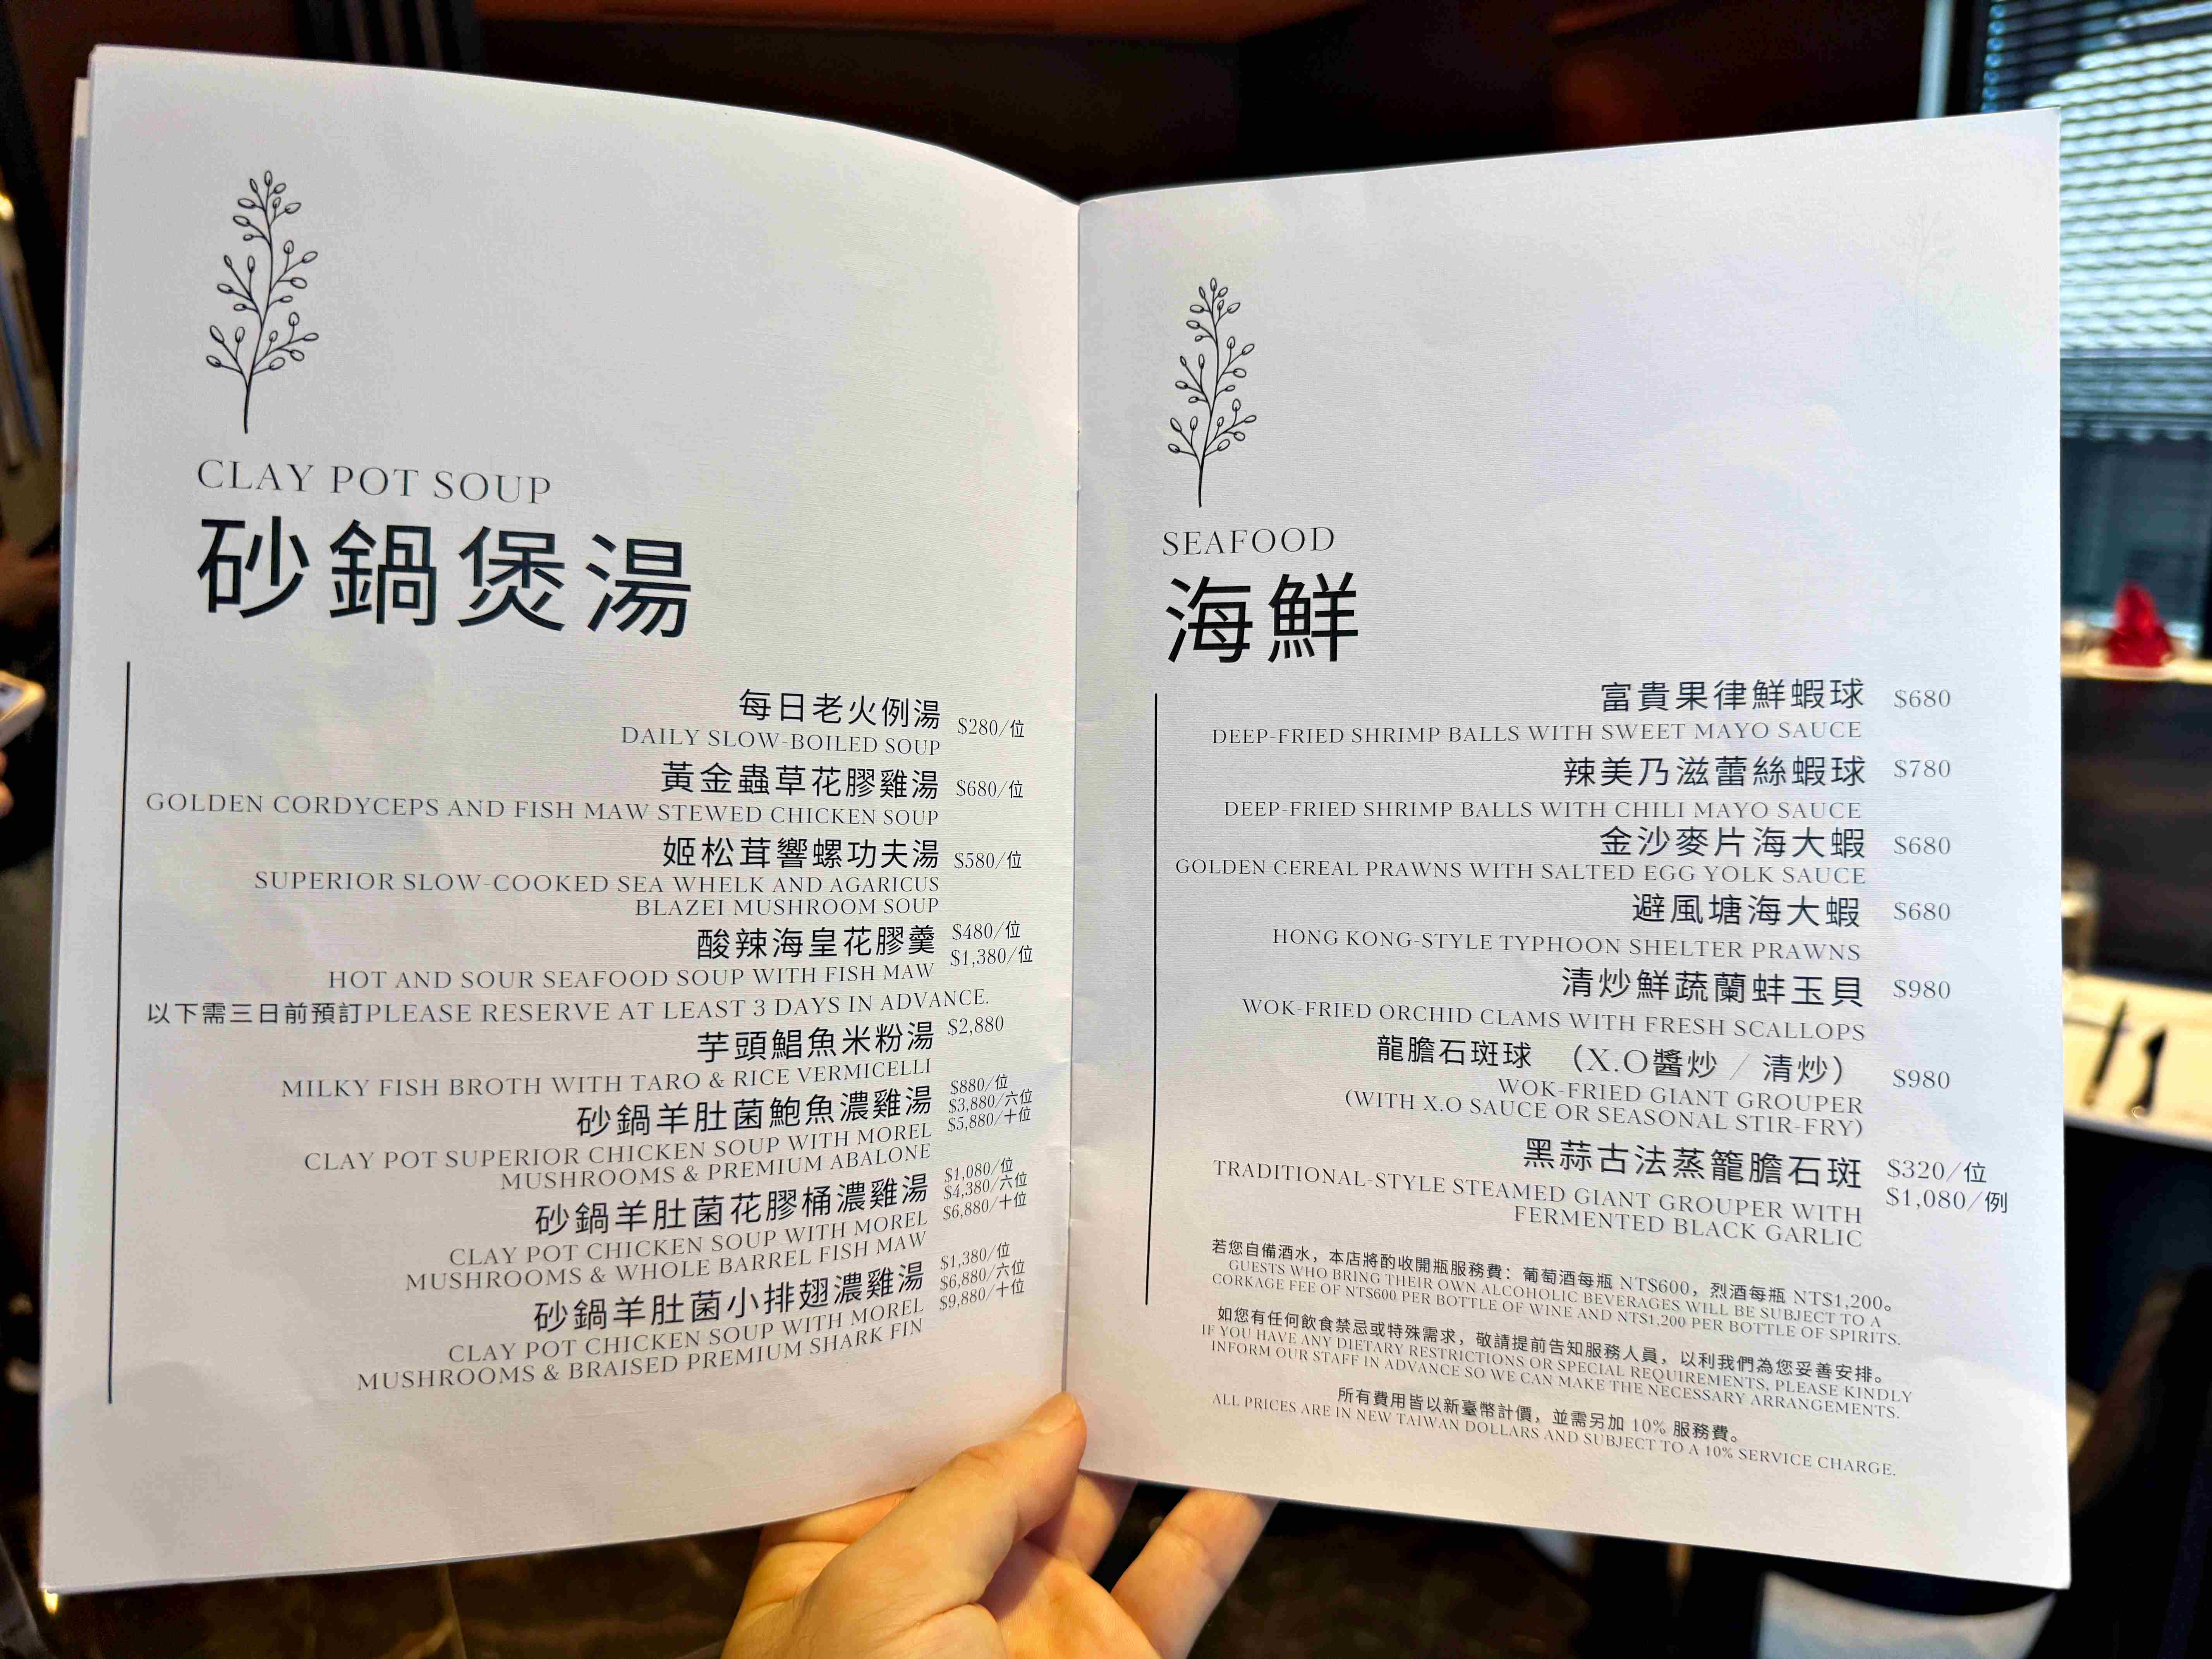 CLAY POT SOUP
砂鍋煲湯
每日老火例湯 $280/位
DAILY SLOW-BOILED SOUP
黃金蟲草花膠雞湯 $680/位
GOLDEN CORDYCEPS AND FISH MAW STEWED CHICKEN SOUP
姬松茸響螺功夫湯 $580/位
SUPERIOR SLOW-COOKED SEA WHELK AND AGARICUS
BLAZEI MUSHROOM SOUP
酸辣海皇花膠羹 $480/位
$1,380/位
HOT AND SOUR SEAFOOD SOUP WITH FISH MAW
以下需三日前預訂PLEASE RESERVE AT LEAST 3 DAYS IN ADVANCE.
芋頭鯧魚米粉湯 $2,880
MILKY FISH BROTH WITH TARO & RICE VERMICELLI
砂鍋羊肚菌鮑魚濃雞湯 $880/位
$3,880/六位
$5,880/十位
CLAY POT SUPERIOR CHICKEN SOUP WITH MOREL
MUSHROOMS & PREMIUM ABALONE
砂鍋羊肚菌花膠桶濃雞湯 $1,080/位
$4,380/六位
$6,880/十位
CLAY POT CHICKEN SOUP WITH MOREL
MUSHROOMS & WHOLE BARREL FISH MAW
砂鍋羊肚菌小排翅濃雞湯 $1,380/位
$6,880/六位
$9,880/十位
CLAY POT CHICKEN SOUP WITH MOREL
MUSHROOMS & BRAISED PREMIUM SHARK FIN
SEAFOOD
海鮮
富貴果律鮮蝦球 $680
DEEP-FRIED SHRIMP BALLS WITH SWEET MAYO SAUCE
辣美乃滋蕾絲蝦球 $780
DEEP-FRIED SHRIMP BALLS WITH CHILI MAYO SAUCE
金沙麥片海大蝦 $680
GOLDEN CEREAL PRAWNS WITH SALTED EGG YOLK SAUCE
避風塘海大蝦 $680
HONG KONG-STYLE TYPHOON SHELTER PRAWNS
清炒鮮蔬蘭蚌玉貝 $980
WOK-FRIED ORCHID CLAMS WITH FRESH SCALLOPS
龍膽石斑球 （X.O醬炒 / 清炒） $980
WOK-FRIED GIANT GROUPER
(WITH X.O SAUCE OR SEASONAL STIR-FRY)
黑蒜古法蒸龍膽石斑 $320/位
$1,080/例
TRADITIONAL-STYLE STEAMED GIANT GROUPER WITH
FERMENTED BLACK GARLIC
若您自備酒水，本店將酌收開瓶服務費：葡萄酒每瓶 NT$600，烈酒每瓶 NT$1,200。
GUESTS WHO BRING THEIR OWN ALCOHOLIC BEVERAGES WILL BE SUBJECT TO A
CORKAGE FEE OF NT$600 PER BOTTLE OF WINE AND NT$1,200 PER BOTTLE OF SPIRITS.
如您有任何飲食禁忌或特殊需求，敬請提前告知服務人員，以利我們為您妥善安排。
IF YOU HAVE ANY DIETARY RESTRICTIONS OR SPECIAL REQUIREMENTS, PLEASE KINDLY
INFORM OUR STAFF IN ADVANCE SO WE CAN MAKE THE NECESSARY ARRANGEMENTS.
所有費用皆以新臺幣計價，並需另加 10% 服務費。
ALL PRICES ARE IN NEW TAIWAN DOLLARS AND SUBJECT TO A 10% SERVICE CHARGE.